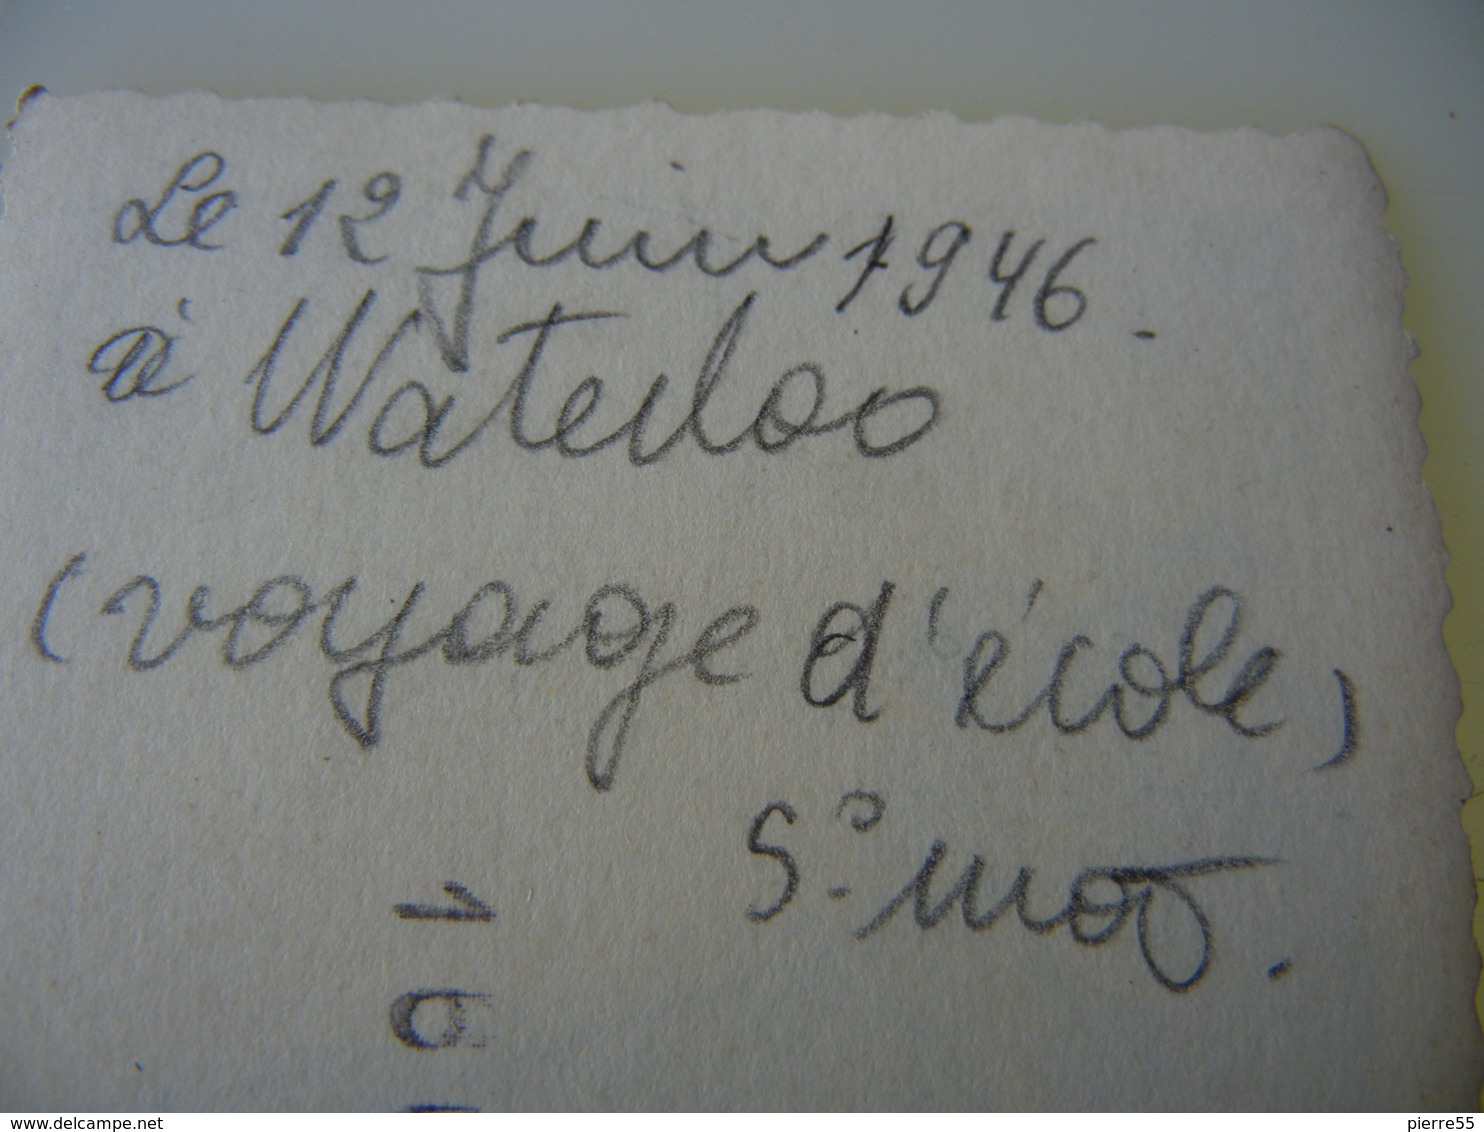 Le 12 Juin 1946.
à Waterloo
(voyage d'école)
delcampe.net
pierre55